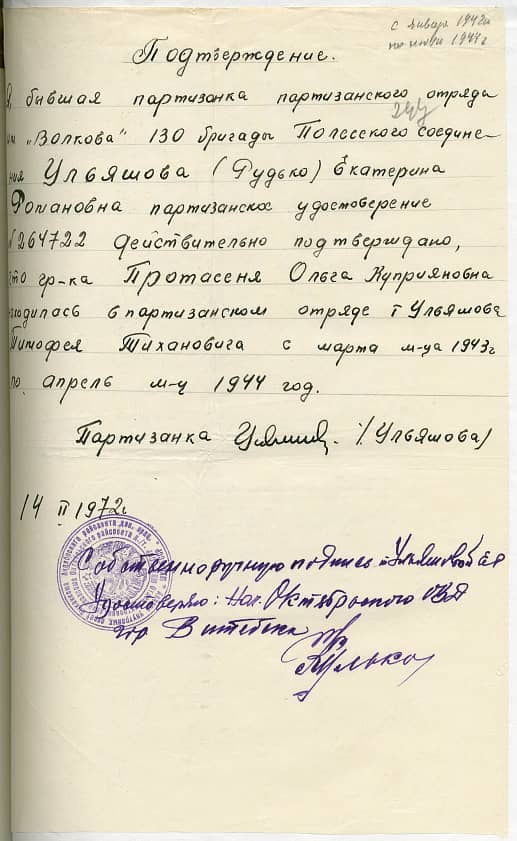 с января 1942г
по июнь 1944г
Подтверждение.
Я, бывшая партизанка партизанского отряды
им „Волкова" 130 бригады Полесского соедине-
ния Ульяшова (Рудько) Екатерина
Романовна партизанское удостоверение
№264722 действительно подтверждаю,
что гр-ка Протасеня Ольга Куприяновна
находилась в партизанском отряде т Ульяшова
Тимофея Тихановича с марта м-ца 1943г
по апрель м-ц 1944 год.
Партизанка (Ульяшова)
14 II 1972г.
Собственноручную подпись Ульяшовой
Удостоверяю: Нач. Октябрьского ОВД
гор Витебска